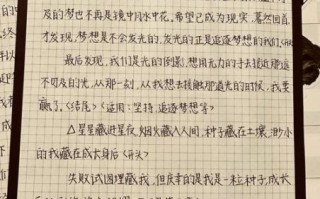 及的梦也不再是镜中月水中花,希望已成为现实,蓦然回首
才发现,梦想是不会发光的,发光的正是追逐梦想的我们
最后发现,我们是光的倒影,想用无力的手去接近那遥
不可及的光,从那一刻,从我想去接触那道光的时候,我要
赢了,《结尾》《适用:坚持、追逐梦想等》
△星星藏进星夜,烟火藏入人间,种子藏在土壤,渺小
的我藏在成长身后《开头》
失败试图埋藏我,但庆幸的是我是一粒种子,成长